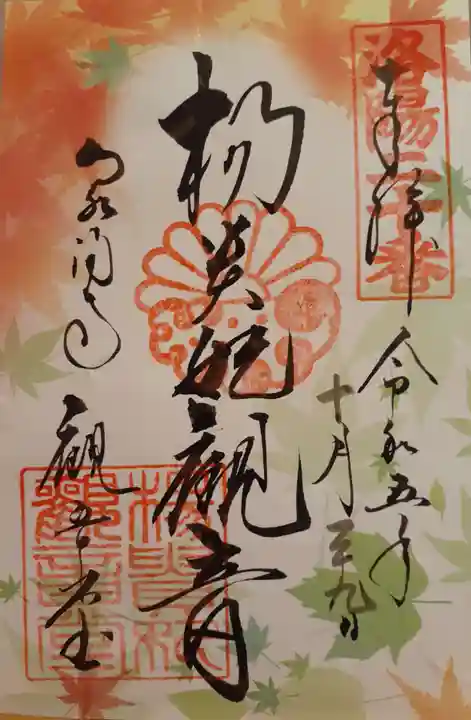 洛陽二十番
奉拝 令和五年
十月二十九日
楊貴妃觀音
泉涌寺 觀音堂
楊貴妃
觀音堂